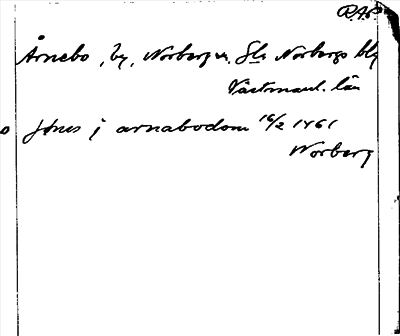 R.A.P.
Årnebo, by, Norbergs sn. Gla Norbergs blg
Västmanl. län
o Jönes j arnabodom 16/2 1461
Norberg